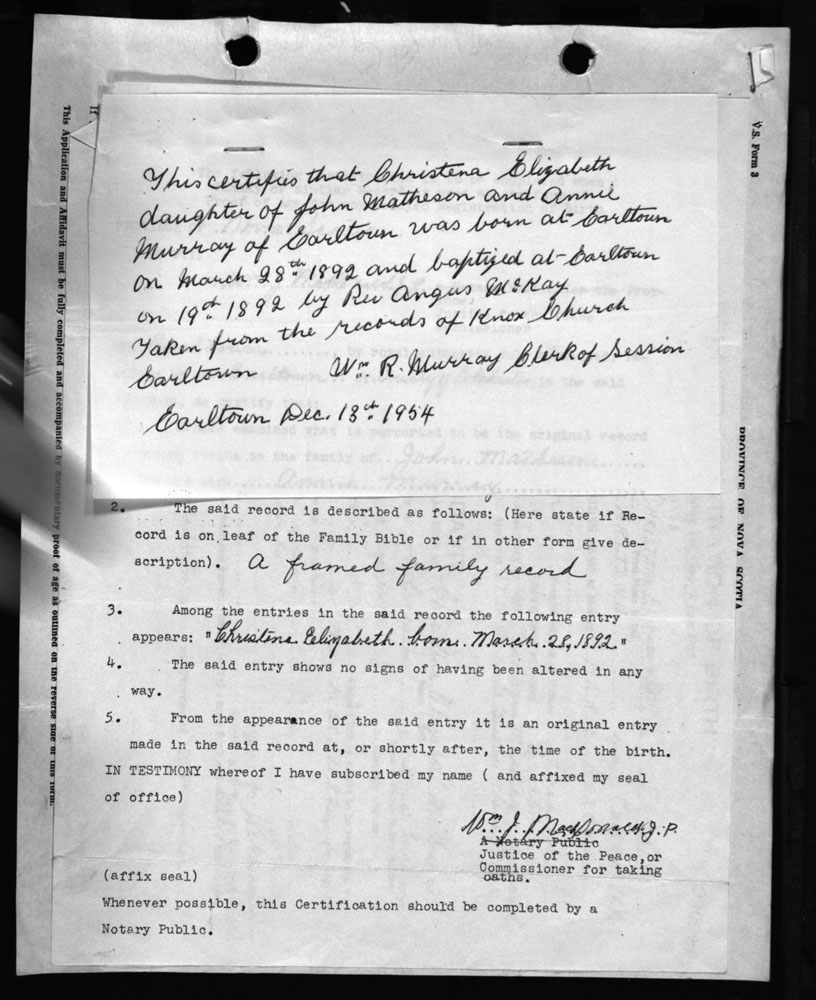 V.S. Form 3
If
This Application and Affidavit must be fully completed and accompanied by documentary proof of age as outlined on the reverse side of this form.
PROVINCE OF NOVA SCOTIA
This certifies that Christena Elizabeth
daughter of John Matheson and Annie
Murray of Earltown was born at Earltown
on March 28th 1892 and baptized at Earltown
on 19th 1892 by Rev Angus McKay
Taken from the records of Knox Church
Earltown Wm. R. Murray Clerk of Session
Earltown Dec. 13th 1954
John Matheson
Annie Murray
2. The said record is described as follows: (Here state if Re-
cord is on leaf of the Family Bible or if in other form give de-
scription). A framed family record
3. Among the entries in the said record the following entry
appears: "Christena Elizabeth born March 28, 1892"
4. The said entry shows no signs of having been altered in any
way.
5. From the appearance of the said entry it is an original entry
made in the said record at, or shortly after, the time of the birth.
IN TESTIMONY whereof I have subscribed my name ( and affixed my seal
of office)
Wm. J. MacDonald J.P.
A Notary Public
Justice of the Peace, or
Commissioner for taking
oaths.
(affix seal)
Whenever possible, this Certification should be completed by a
Notary Public.